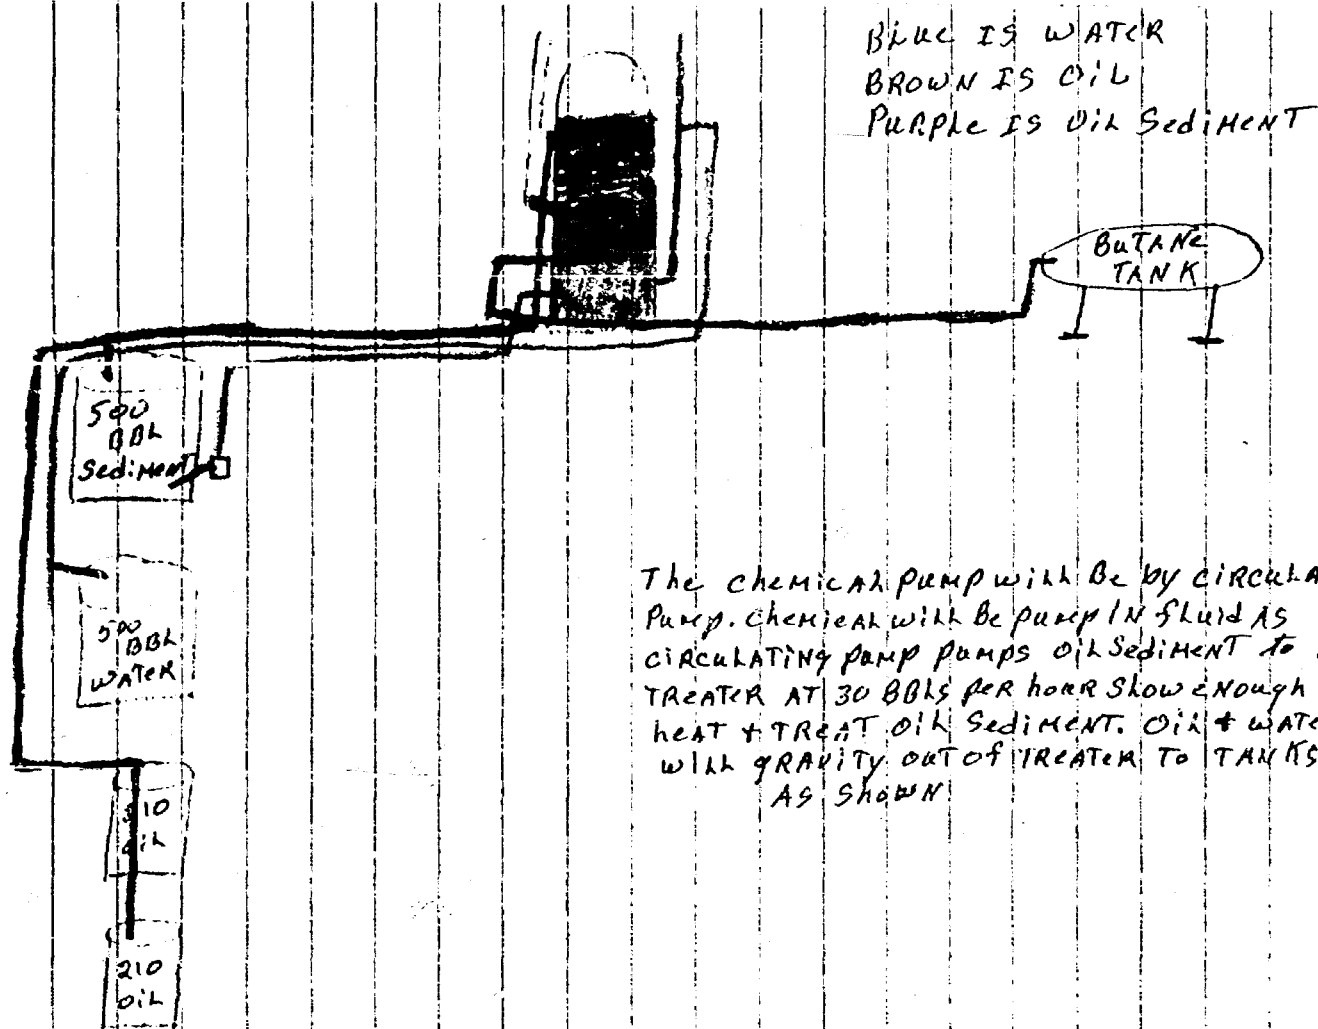 Blue IS WATER
BROWN IS OIL
PURPLE IS OIL SediMENT
BUTANE
TANK
500
BBL
SediMENT
500
BBL
WATER
The CheMICAL PUMP will Be by CIRCULA
PUMP. CheMICAL will Be PUMP IN fluid AS
CIRCULATING PUMP PUMPS OIL SediMENT to
TREATER AT 30 BBLS PER hour Slow eNough
heAT + TREAT OIL SediMENT. OIL + WATE
will GRAVITY OUT OF TREATER TO TANKS
AS ShowN
210
OIL
210
OIL